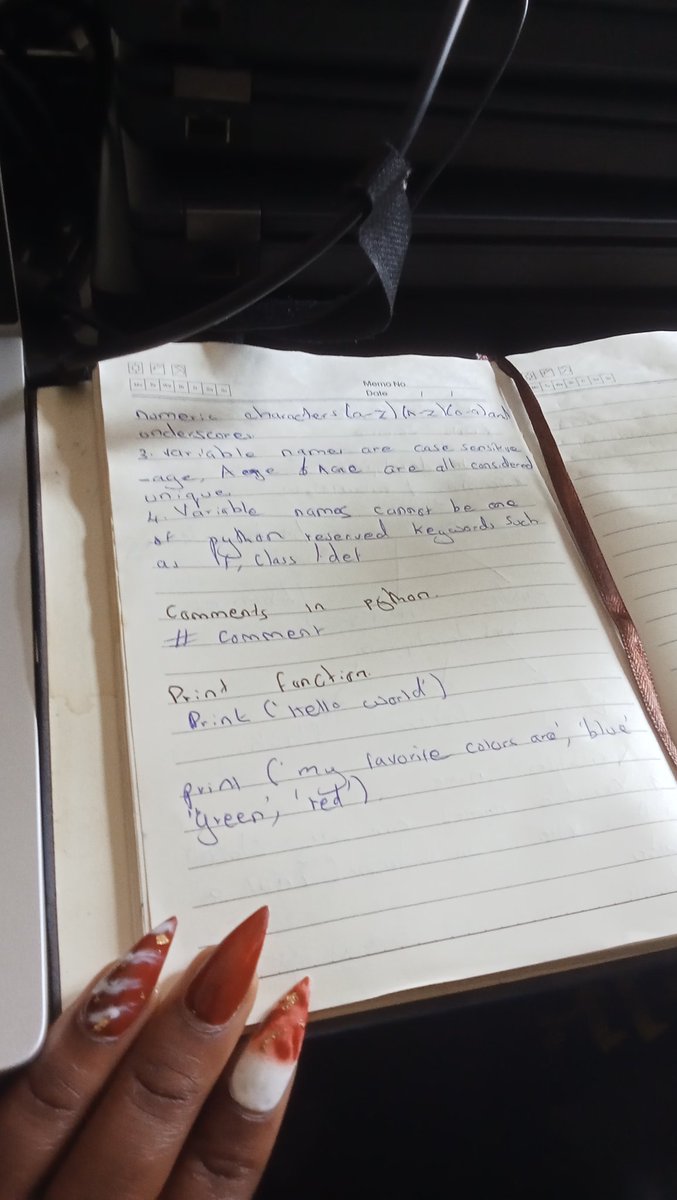 Memo No.
Date / /
numeric characters (a-z) (A-Z) (0-9) and
underscores
3. Variable names are case sensitive
-age, Age & AGE are all considered
unique
4. Variable names cannot be one
of python reserved keywords such
as if, class, def
Comments in python.
# comment
Print function.
Print ('Hello world')
print ('my favorite colors are', 'blue'
'green', 'red')